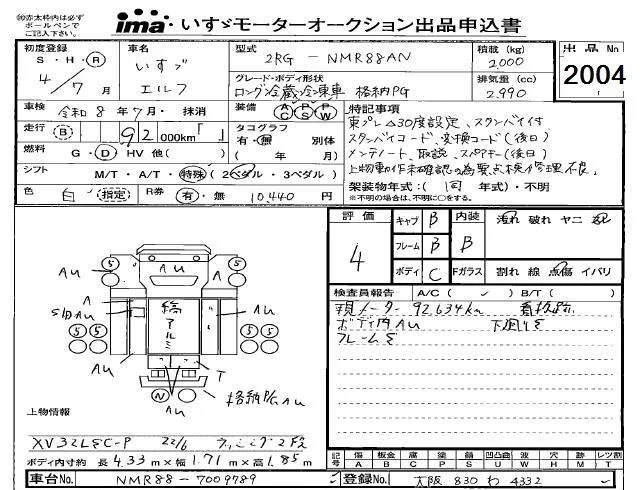 ㊟赤太枠内は必ず
ボールペンで
ご記入下さい。
ima・いすゞモーターオークション出品申込書
初度登録
S・H・Ⓡ
4/7月
車名
いすゞ
エルフ
型式
2RG-NMR88AN
グレード・ボディ形状
ロング冷蔵冷凍車 格納PG
積載 (kg)
2,000
排気量 (cc)
2,990
出品No
2004
車検 令和8年7月・抹消
装備 AC PS PW
走行 (B) 92 000km「 」
タコグラフ
有・無 別体
( 年 月)
燃料 G・Ⓓ HV 他( )
シフト M/T・A/T・特殊(2ペダル・3ペダル)
色 白 (指定) R券 有・無 10,440円
特記事項
東プレ△30度設定、スタンバイ付
スタンバイコード、変換コード(後日)
メンテノート、取説、スペアキー(後日)
上物動作未確認の為要点検・管理不良。
架装物年式:(同 年式)・不明
※不明の場合は、不明に○をする。
評価 4
キャブ B
フレーム B
ボディ C
内装 B
Fガラス
汚れ 破れ ヤニ
割れ 線 点傷 イバリ
検査員報告 A/C( ✓ ) B/T( )
現メーター 92,634km 看板跡
ボディ内AU 下廻りS
フレームS
5 AU AU 5
A
S凹AU
縞アルミ
AU
5 5 5 5
AU T
N AU
格納PG AU
上物情報
XV32LSC-P 22/6
ボディ内寸約 長4.33m×幅1.71m×高1.85m
記号 傷 A 板金 B 腐 C 塗 P 錆 S 凹凸曲 U 波 W 穴 H 跡 M レツ割 T
車台No. NMR88-7009789
登録No. 大阪 830 わ 4332